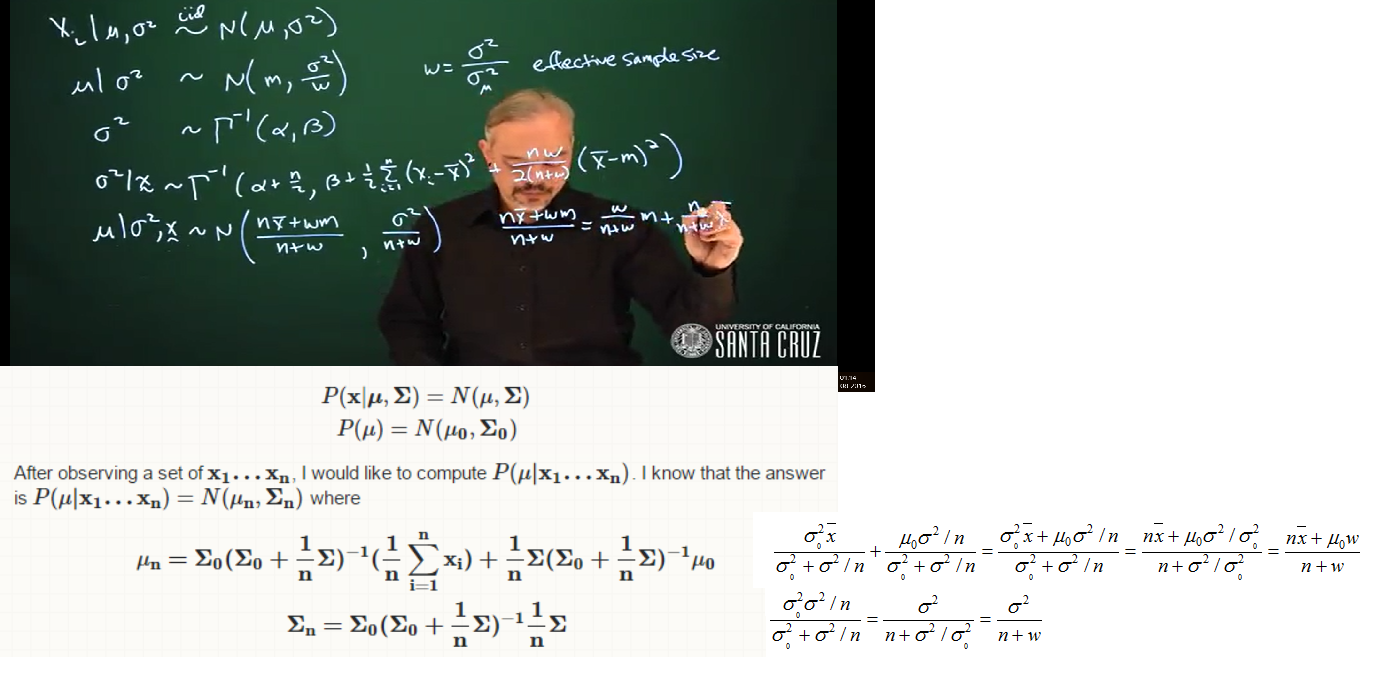 xᵢ | μ, σ² iid ~ N(μ, σ²)
μ | σ² ~ N(m, σ²/w) w = σ²/σ_μ² effective sample size
σ² ~ Γ⁻¹(α, β)
σ² | x ~ Γ⁻¹(α + n/2, β + 1/2 Σᵢ₌₁ⁿ (xᵢ - x̄)² + nw/(2(n+w)) (x̄ - m)²)
μ | σ², x ~ N((nx̄ + wm)/(n+w), σ²/(n+w)) (nx̄ + wm)/(n+w) = w/(n+w) m + n/(n+w) x̄
UNIVERSITY OF CALIFORNIA
SANTA CRUZ
P(x|μ, Σ) = N(μ, Σ)
P(μ) = N(μ₀, Σ₀)
After observing a set of x₁...xₙ, I would like to compute P(μ|x₁...xₙ). I know that the answer
is P(μ|x₁...xₙ) = N(μₙ, Σₙ) where
μₙ = Σ₀(Σ₀ + 1/n Σ)⁻¹(1/n Σᵢ₌₁ⁿ xᵢ) + 1/n Σ(Σ₀ + 1/n Σ)⁻¹μ₀
Σₙ = Σ₀(Σ₀ + 1/n Σ)⁻¹ 1/n Σ
σ₀²x̄/(σ₀² + σ²/n) + μ₀σ²/n/(σ₀² + σ²/n) = (σ₀²x̄ + μ₀σ²/n)/(σ₀² + σ²/n) = (nx̄ + μ₀σ²/σ₀²)/(n + σ²/σ₀²) = (nx̄ + μ₀w)/(n + w)
σ₀²σ²/n/(σ₀² + σ²/n) = σ²/(n + σ²/σ₀²) = σ²/(n + w)